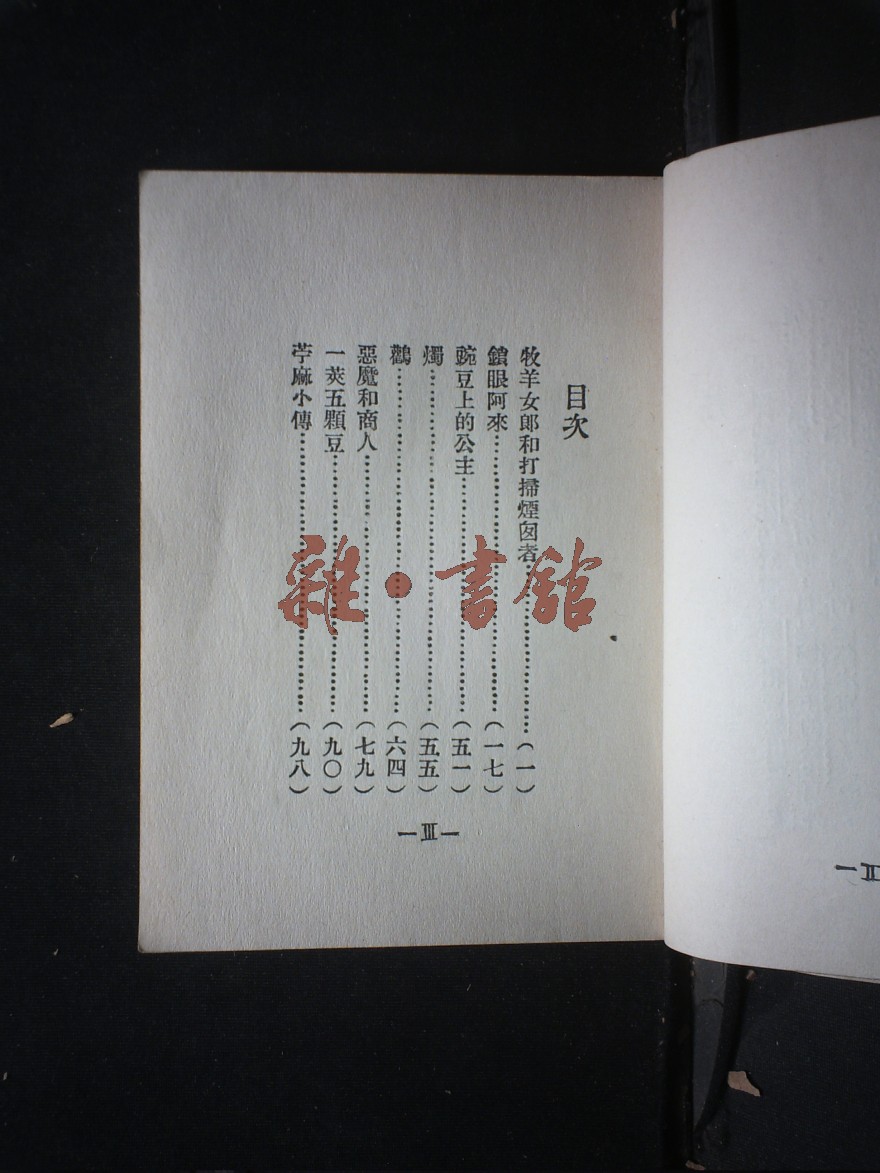 目次
牧羊女郎和打掃煙囱者……………(一)
鎖眼阿來……………(一七)
豌豆上的公主……………(五一)
燭……………(五五)
鸛……………(六四)
惡魔和商人……………(七九)
一莢五顆豆……………(九〇)
苧麻小傳……………(九八)
—Ⅲ—
雜·書館
—Ⅱ